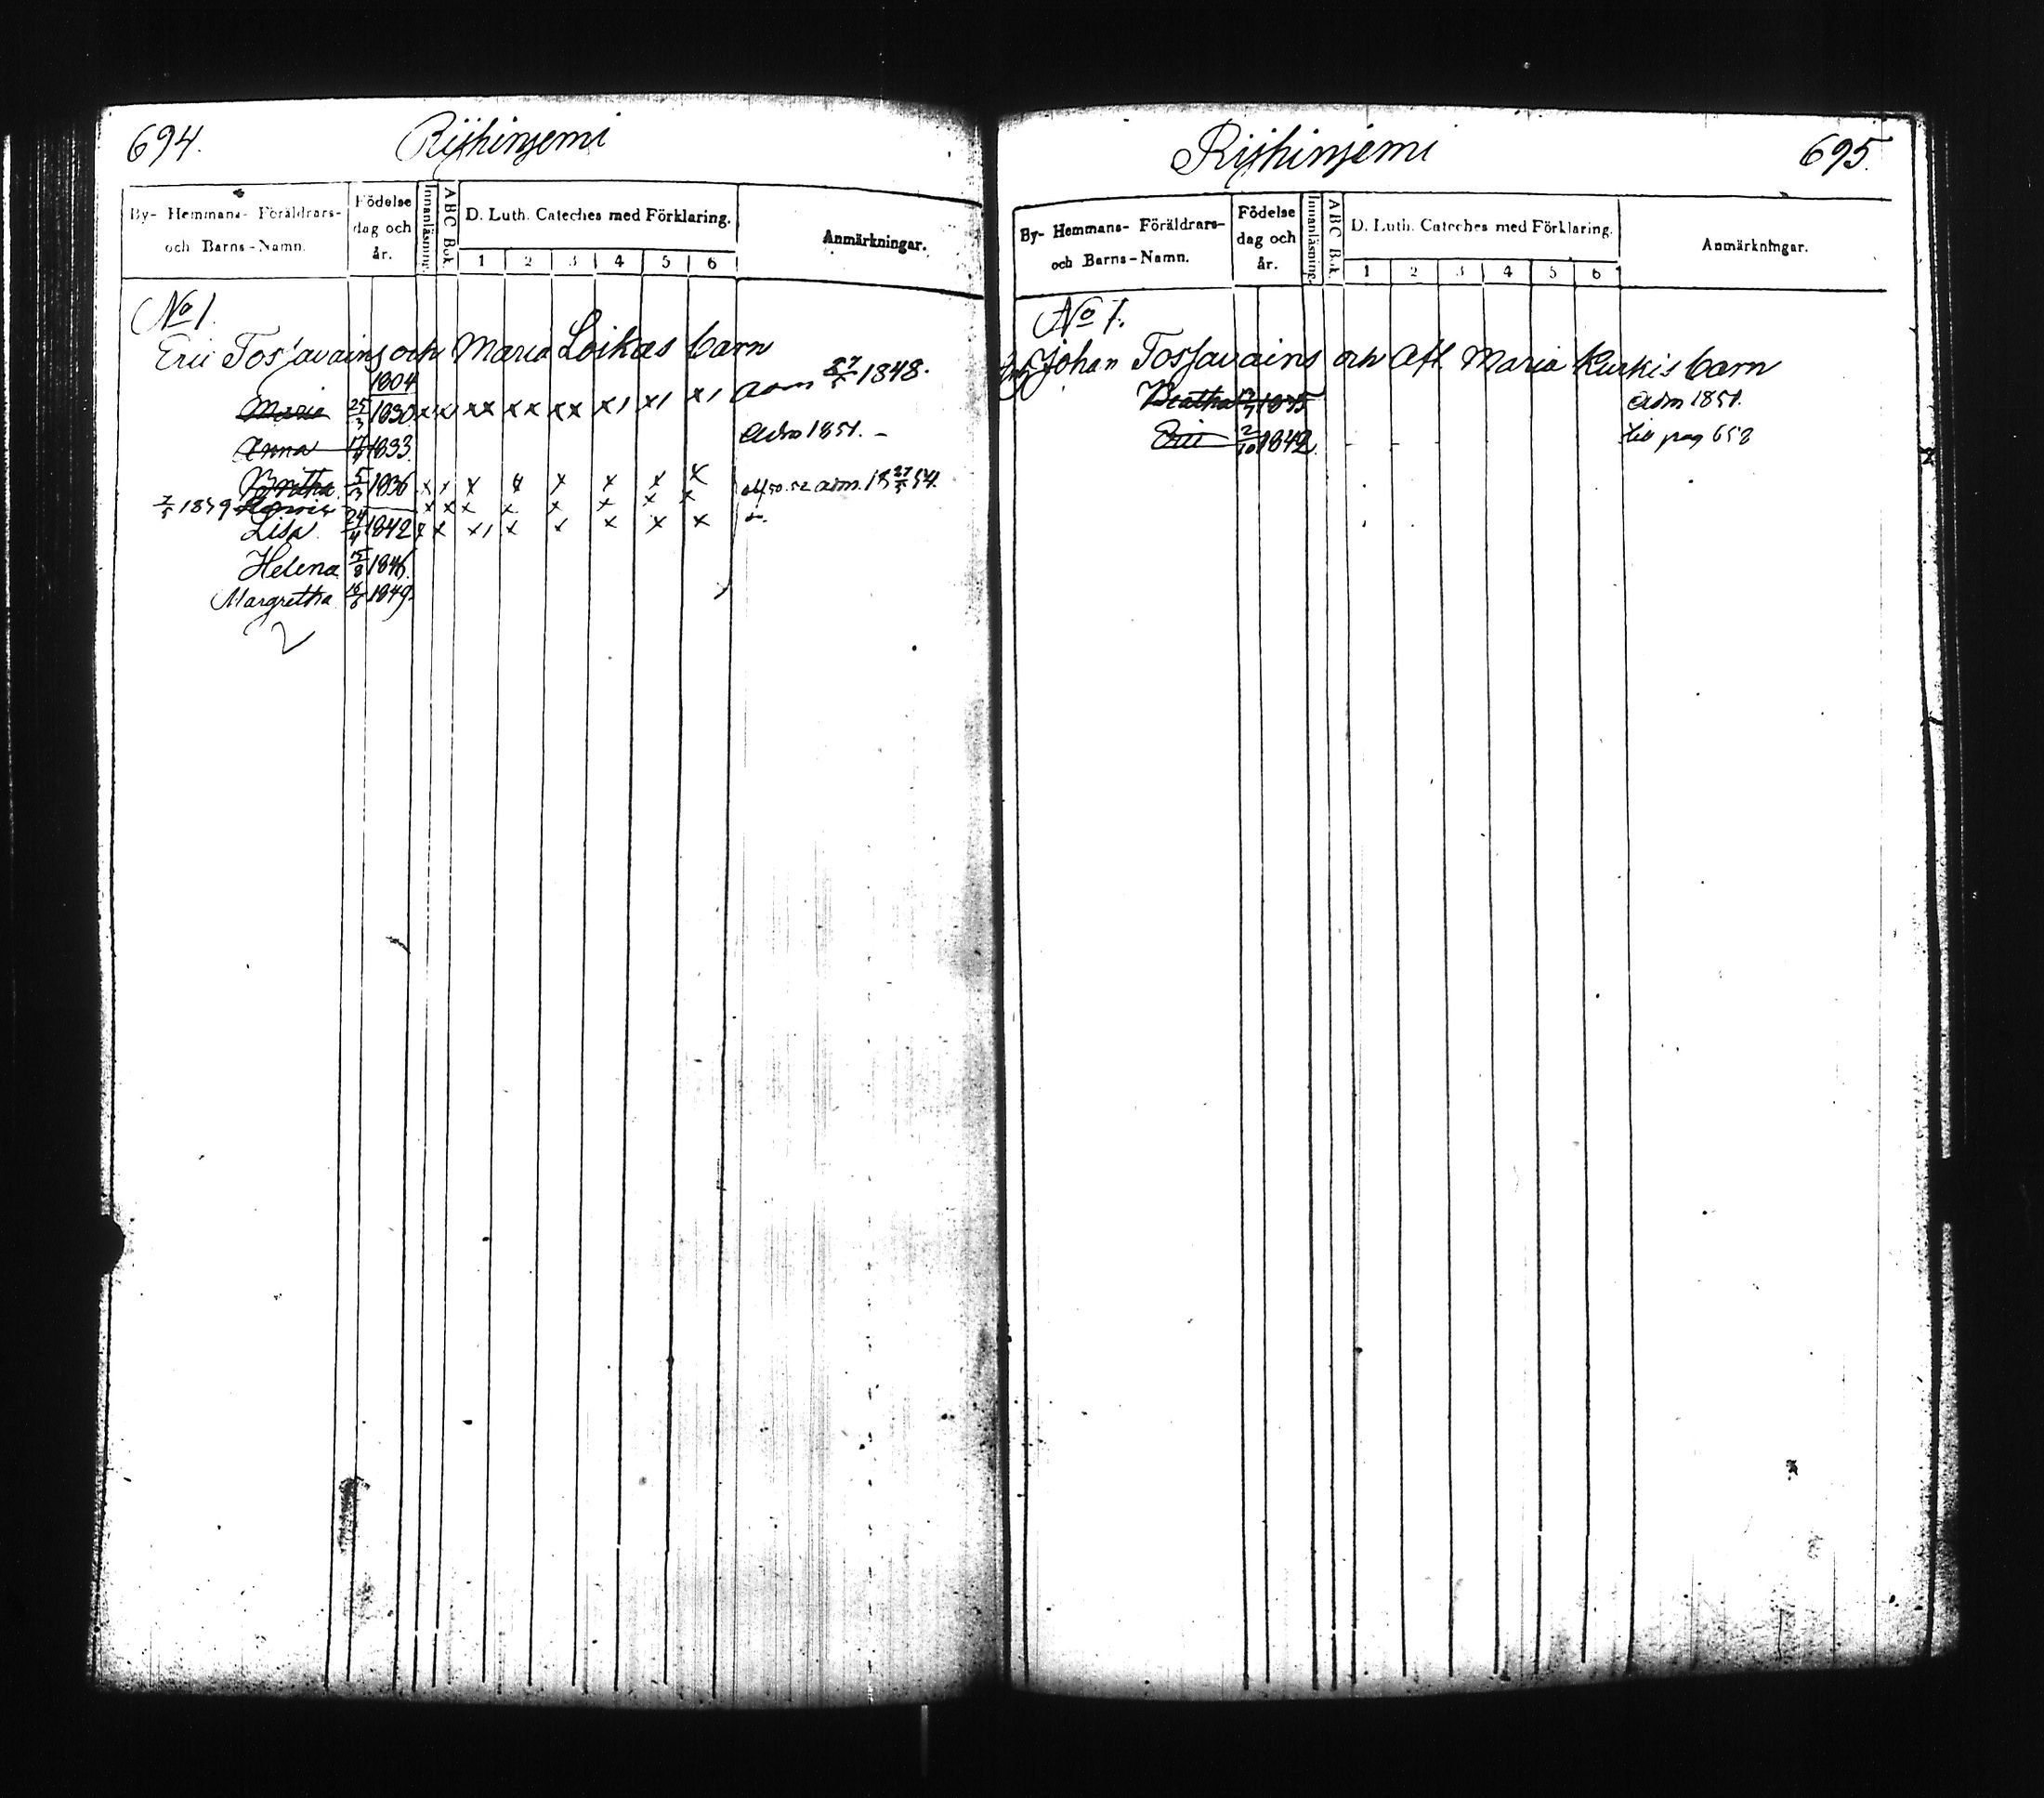 694.
Riihinjemi
By- Hemmans- Föräldrars-
och Barns-Namn.
Födelse
dag och
år.
Innanläsning.
ABC Bok.
D. Luth. Cateches med Förklaring.
1 2 3 4 5 6
Anmärkningar.
No 1.
Eric Tossavains och Maria Loikas barn
1804
Maria 25/3 1830 x x x x x x x x x 1 x 1 x 1 adm 27/5 1848.
Anna 1833 Adm 1851. -
Britha 5/3 1836 x x x x x x x x adm. 18 27/5 54.
7/5 1839 x x x x x x x x
Lisa 24/4 1842 x x x 1 x x x x x
Helena 15/8 1846.
Margretha 16/6 1849.
695.
Riihinjemi
By- Hemmans- Föräldrars-
och Barns-Namn.
Födelse
dag och
år.
Innanläsning.
ABC Bok.
D. Luth. Cateches med Förklaring.
1 2 3 4 5 6
Anmärkningar.
No 1.
Johan Tossavains och Afl. Maria Kurkis barn
Beatha 1835 Adm 1851.
Eric 2/10 1842. till pag 658